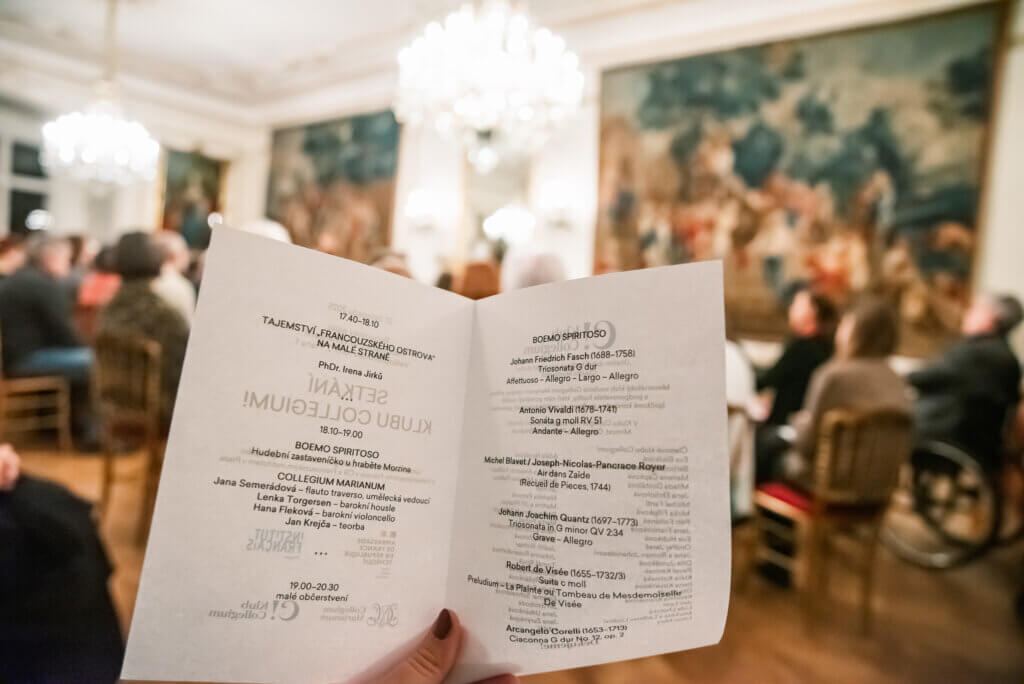 17.40–18.10
TAJEMSTVÍ „FRANCOUZSKÉHO OSTROVA"
NA MALÉ STRANĚ
PhDr. Irena Jirků
SETKÁNÍ
KLUBU COLLEGIUM!
18.10–19.00
BOEMO SPIRITOSO
Hudební zastaveníčko u hraběte Morzina
COLLEGIUM MARIANUM
Jana Semerádová – flauto traverso, umělecká vedoucí
Lenka Torgersen – barokní housle
Hana Fleková – barokní violoncello
Jan Krejča – teorba
INSTITUT
FRANÇAIS
AMBASSADE
DE FRANCE
EN RÉPUBLIQUE
TCHÈQUE
...
19.00–20.30
malé občerstvení
C! Klub
Collegium
Collegium
Marianum
BOEMO SPIRITOSO
C! Klub
Collegium
Johann Friedrich Fasch (1688–1758)
Triosonata G dur
Affettuoso – Allegro – Largo – Allegro
Antonio Vivaldi (1678–1741)
Sonáta g moll RV 51
Andante – Allegro
Michel Blavet / Joseph-Nicolas-Pancrace Royer
Air dans Zaïde
(Recueil de Pieces, 1744)
Johann Joachim Quantz (1697–1773)
Triosonata in G minor QV 2:34
Grave – Allegro
Robert de Visée (1655–1732/3)
Suite c moll
Preludium – La Plainte ou Tombeau de Mesdemoiselle
De Visée
Arcangelo Corelli (1653–1713)
Ciaconna G dur No. 12, op. 2
Děkujeme!